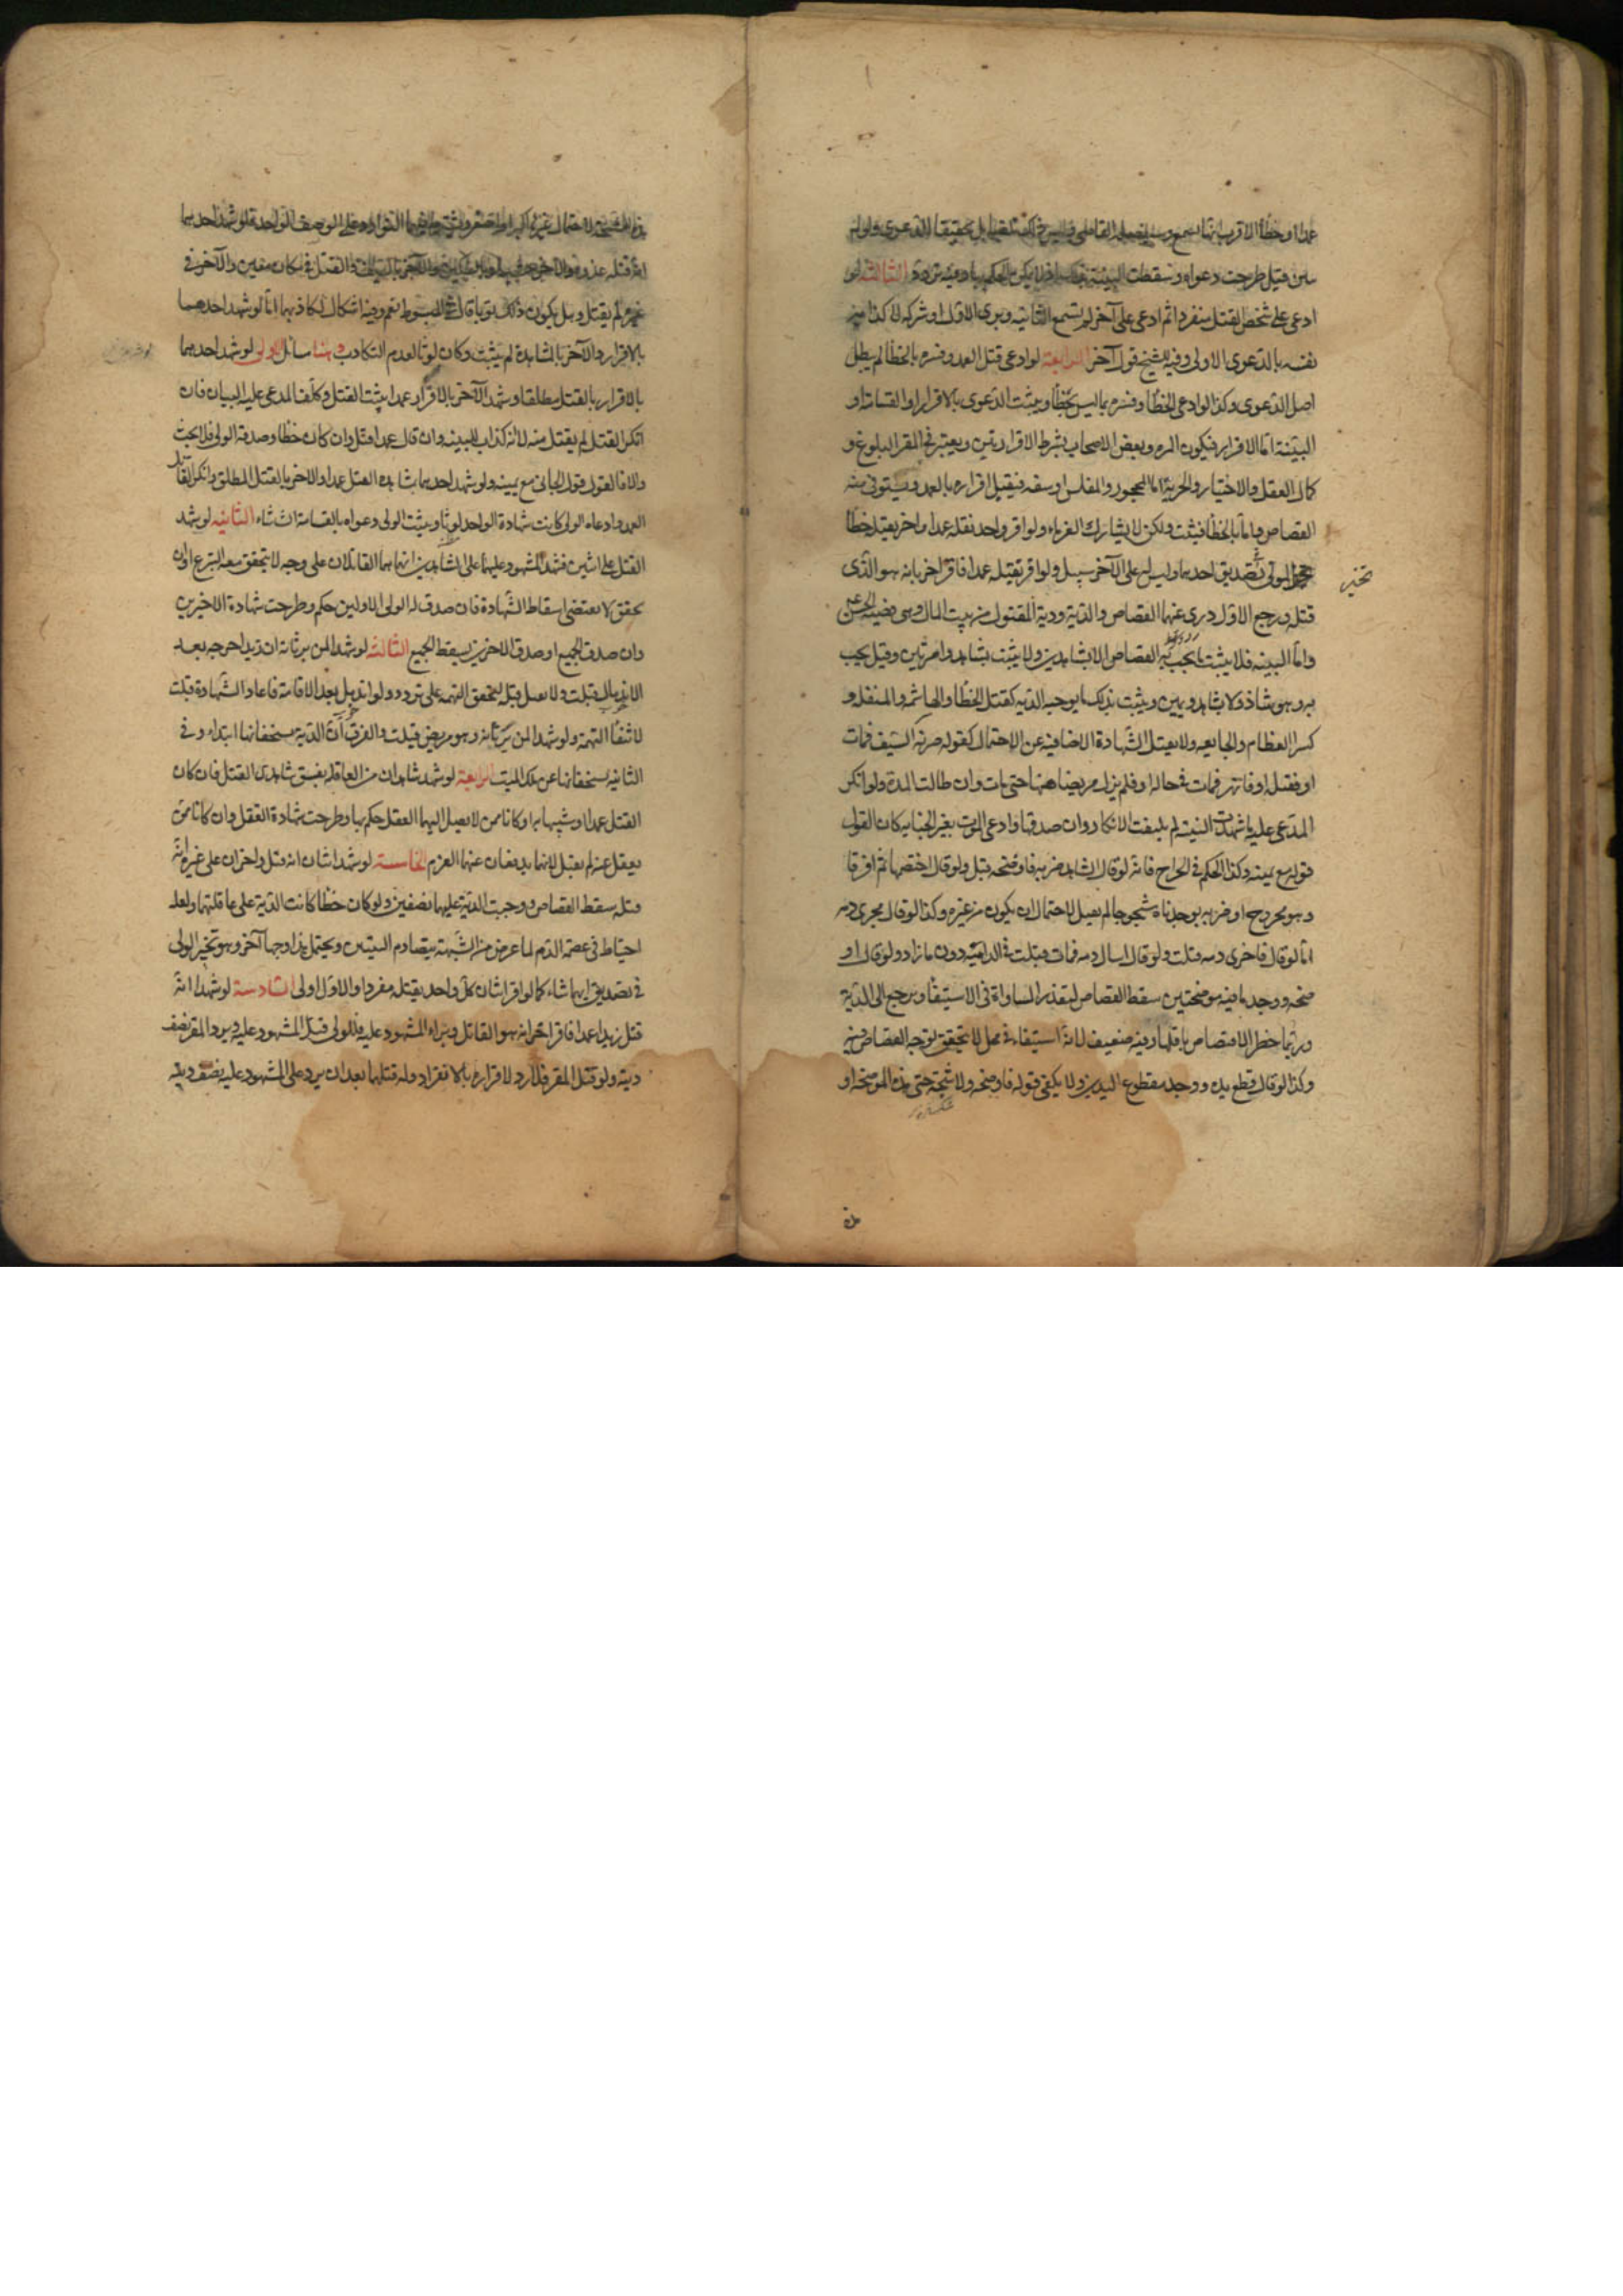 عمدا او خطأ الاقرب انها تسمع ويستفصله القاضي وليس ذلك تلقينا بل تحقيقا للدعوى ولو لم
يبين قيل طرحت دعواه وسقطت البينة بذلك اذ لا يمكن الحكم بها وفيه تردد الثالثة لو
ادعى على شخص القتل منفردا ثم ادعى على آخر لم تسمع الثانية وبرى الاول او شركه لاكذابه
نفسه بالدعوى الاولى وفيه للشيخ قول آخر الرابعة لو ادعى قتل العمد وفسره بالخطأ لم يبطل
اصل الدعوى وكذا لو ادعى الخطأ وفسره بما ليس بخطأ ويثبت الدعوى بالاقرار او القسامة او
البينة اما الاقرار فيكون المرة وبعض الاصحاب يشترط الاقرار مرتين ويعتبر في المقر البلوغ و
كمال العقل والاختيار والحرية اما المحجور والمفلس او سفه فيقبل اقراره بالعمد ويستوفى منه
القصاص واما بالخطأ فيثبت ولكن لا يشارك الغرماء ولو اقر واحد بقتله عمدا وآخر بقتله خطأ
تخير الولي تصديق احدهما وليس له على الآخر سبيل ولو اقر بقتله عمدا فاقر آخر بانه هو الذى
قتل ورجع الاول درئ عنهما القصاص والدية ودية المقتول من بيت المال وهى قضية الحسن ع
واما البينة فلا يثبت ما يجب به القصاص الا بشاهدين ولا يثبت بشاهد وامرأتين وقيل يجب
به وهو شاذ ولا بشاهد ويمين ويثبت بذلك ما يوجب الدية كقتل الخطأ والهاشمة والمنقلة و
كسر العظام والجايفة ولا يقبل الشهادة الا صافية عن الاحتمال كقوله ضربه بالسيف فمات
او فقتله او فانهر فمات في حاله او فلم يزل مريضا منها حتى مات وان طالت المدة ولو انكر
المدعى عليه ما شهدت البينة لم يلتفت الى انكاره وان صدقها وادعى الموت بغير الجناية كان القول
قوله مع يمينه وكذا الحكم في الجراح فانه لو قال الشاهد ضربه فاوضحه قبل ولو قال اختصما ثم افترقا
وهو مجروح او ضربه فوجدناه مشجوجا لم يقبل لاحتمال ان يكون من غيره وكذا لو قال فجرى دمه
اما لو قال فاجرى دمه قبلت ولو قال اسال دمه فمات قبلت في الدامية دون ما زاد ولو قال او
ضحه ووجد ما فيه موضحتين سقط القصاص لتعذر المساواة في الاستيفاء ويرجع الى الدية
وربما خطر الاقتصاص باقلهما وفيه ضعيف لانه استيفاء في محل لا يتحقق توجه القصاص فيه
وكذا لو قال قطع يده ووجد مقطوع اليدين ولا يكفي قوله فاوضحه ولا شجه حتى يقول هذه الموضحة او
تخير
هذه الشجة لاحتمال غيرها اكبر او اصغر ويشترط فيهما التوارد على الوصف الواحد فلو شهد احدهما
انه قتله غدوة والآخر عشية او بالسكين والآخر بالسيف او القتل في مكان معين والآخر في
غيره لم يقتل وهل يكون ذلك لوثا قال في المبسوط نعم وفيه اشكال لتكاذبهما اما لو شهد احدهما
بالاقرار والآخر بالمشاهدة لم يثبت وكان لوثا لعدم التكاذب وهنا مسائل الاولى لو شهد احدهما
بالاقرار بالقتل مطلقا وشهد الآخر بالاقرار عمدا يثبت القتل وكلف المدعى عليه البيان فان
انكر القتل لم يقبل منه لانه اكذاب للبينة وان قال عمدا قتل وان كان خطأ وصدقه الولى فلا بحث
والا فالقول قول الجانى مع يمينه ولو شهد احدهما بمشاهدة القتل عمدا والآخر بالقتل المطلق وانكر القاتل
العمد وادعاه الولى كانت شهادة الواحد لوثا ويثبت الولى دعواه بالقسامة ان شاء الثانية لو شهد
القتل على اثنين فشهد المشهود عليهما على الشاهدين انهما هما القاتلان على وجه لا يتحقق معه التبرع او ان
تحقق لا يقتضى اسقاط الشهادة فان صدق الولى الاولين حكم وطرحت شهادة الاخيرين
وان صدق الجميع او صدق الاخيرين سقط الجميع الثالثة لو شهدا لمن يرثانه ان زيدا جرحه بعد
الاندمال قبلت ولا تقبل قبله لتحقق التهمة على تردد ولو اندمل بعد الاقامة فاعاد الشهادة قبلت
لانتفاء التهمة ولو شهدا لمن يرثانه وهو مريض قبلت والفرق ان الدية يستحقانها ابتداء وفى
الثانية يستحقانها عن ملك الميت الرابعة لو شهد شاهدان من العاقلة بفسق شاهدى القتل فان كان
القتل عمدا او شبيها به او كانا ممن لا يصل اليهما العقل حكم بها وطرحت شهادة القتل وان كانا ممن
يعقل عنه لم يقبل لانهما يدفعان عنهما الغرم الخامسة لو شهد اثنان انه قتل وآخران على غيره انه
قتله سقط القصاص ووجبت الدية عليهما نصفين ولو كان خطأ كانت الدية على عاقلتهما ولعله
احتياط فى عصمة الدم لما عرض من الشبهة بتصادم البينتين ويحتمل هذا وجها آخر وهو تخير الولى
فى تصديق ايهما شاء كما لو اقر اثنان كل واحد بقتله مفردا والاول اولى السادسة لو شهدا انه
قتل زيدا عمدا فاقر آخر انه هو القاتل وبراه المشهود عليه فللولى قتل المشهود عليه ويرد المقر نصف
ديته وله قتل المقر ولا رد لاقراره بالانفراد وله قتلهما بعد ان يرد على المشهود عليه نصف ديته